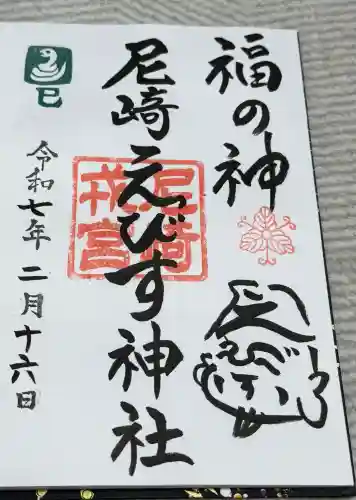 福の神
尼崎えびす神社
尼崎戎宮
巳
令和七年二月十六日